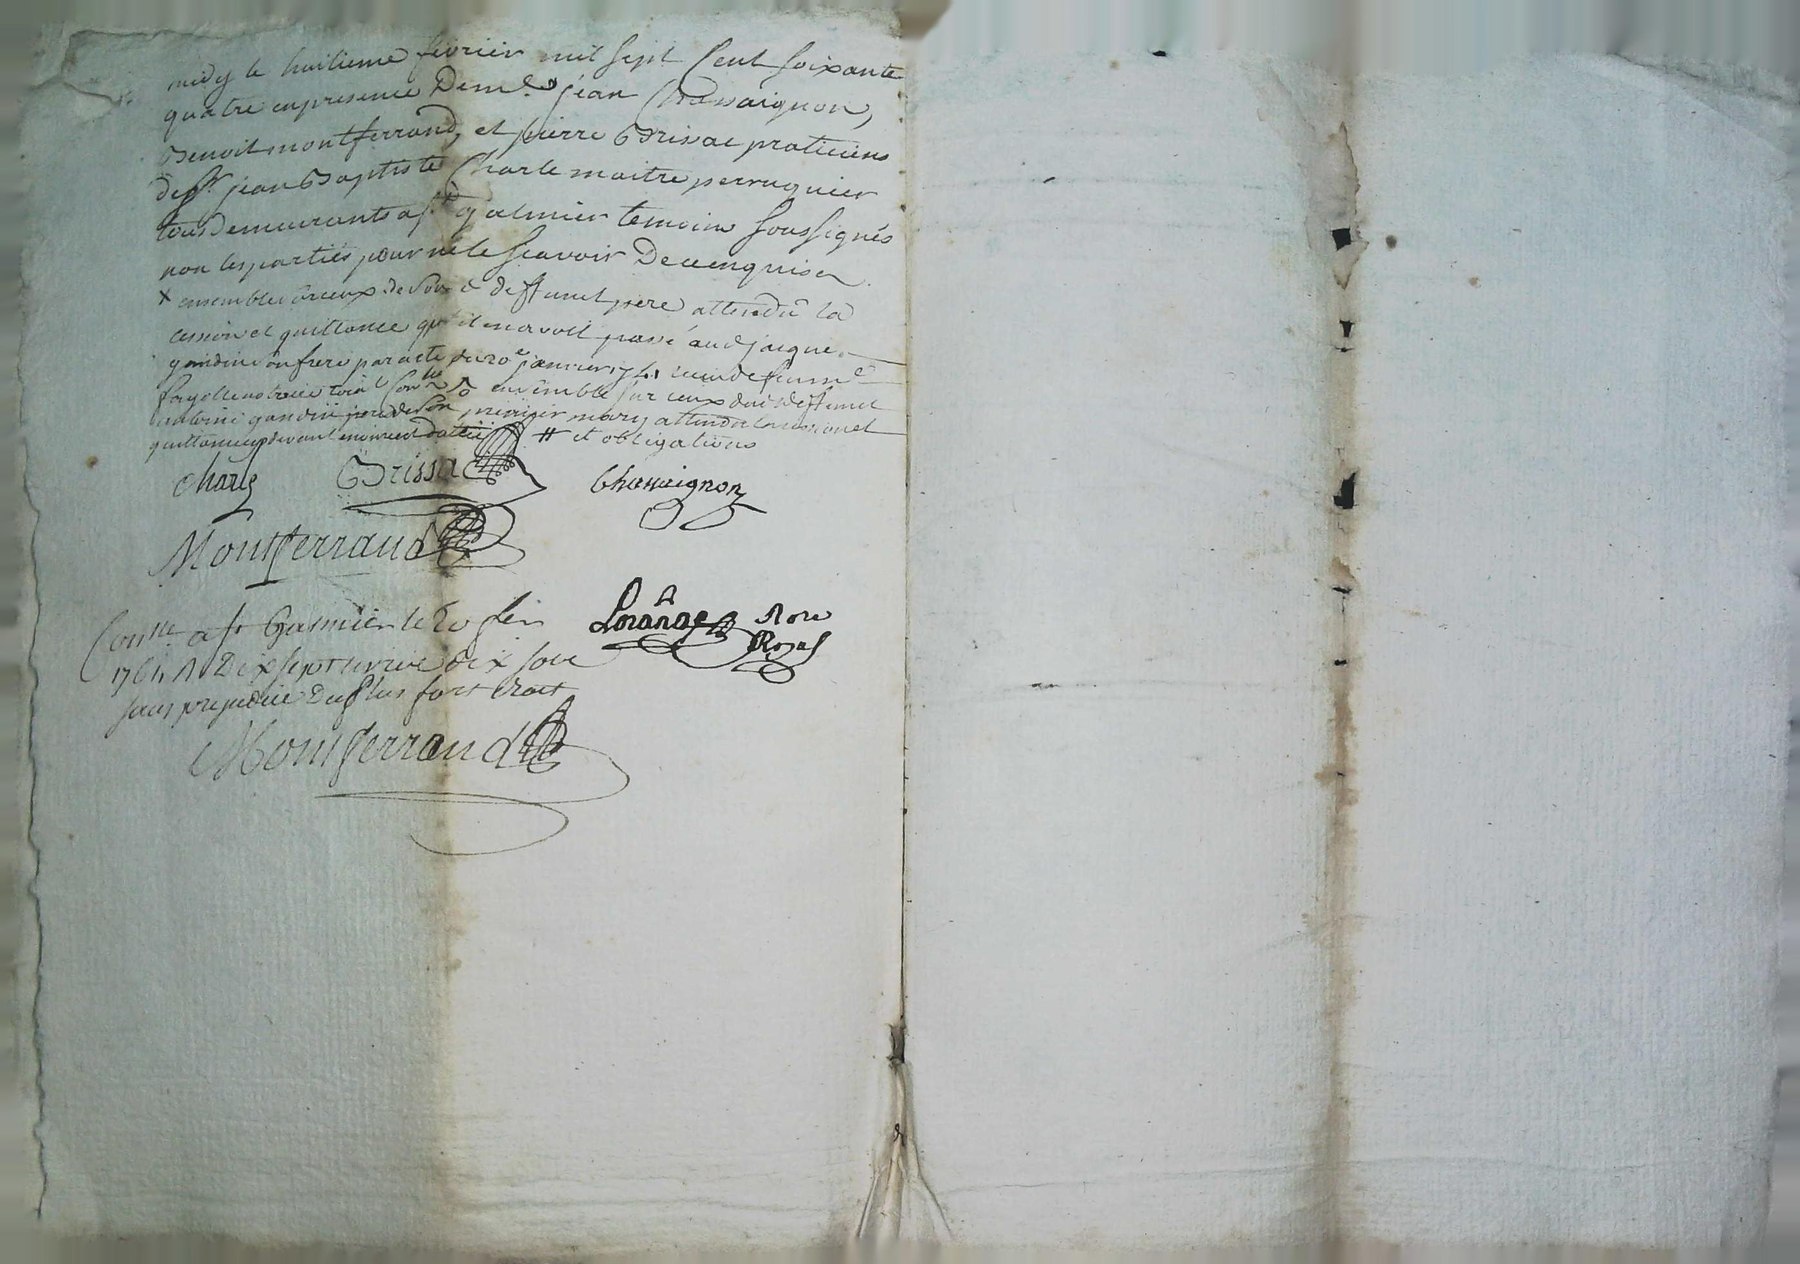 midy le huitieme fevrier mil sept Cent soixante
quatre en presence De me. jean Chassaignon,
Benoit montferrand, et pierre Brissac praticiens
de sr. jean Baptiste Charle maitre perruquier
tous Demeurants a st galmier temoins soussignés
non les parties pour ne le scavoir De ce enquises
x ensembles a ceux de son deffunct pere attendu la
cession et quittance qu'il en avoit passé aud jacque
gandin son frere par acte du 20e janvier 1741 receu de
ensemble sur ceux dud deffunct
gandin pere de son premier mary attendu la cession et
quittance # et obligations
Charle Brissac Chassaignon
Montferrand
Conlle a st Galmier le 20 fer
1764 R Dix sept livres dix sols
sans prejudice Du plus fort droit
Montferrand